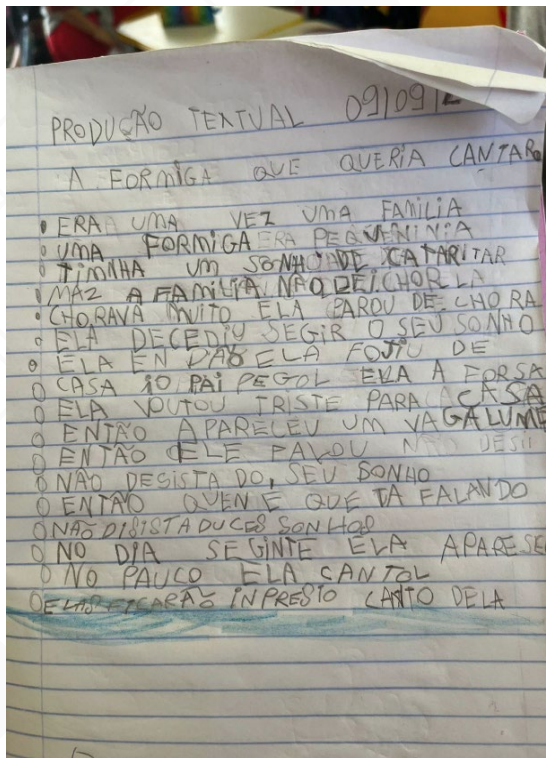 PRODUÇÃO TEXTUAL 09/09/2
A FORMIGA QUE QUERIA CANTAR
ERA UMA VEZ UMA FAMILIA
UMA FORMIGA ERA PEQUENINIA
TIMNHA UM SONHO DE CATARITAR
MAZ A FAMILIA NÃO DEICHOR LA
CHORAVA MUITO ELA PAROU DE CHORA
ELA DECEDIU SEGIR O SEU SONHO
ELA EN DAÕ ELA FOJIU DE
CASA IO PAI PEGOL ELA A FORSA
ELA VOUTOU TRISTE PARA A CASA
ENTÃO APARECEU UM VAGALUME
ENTÃO ELE FALOU NÃO DESI
NÃO DESISTA DO, SEU SONHO
ENTÃO QUEN E QUE TA FALANDO
NÃO DISISTA DUCES SONHOS
NO DIA SEGINTE ELA APARESE
NO PAUCO ELA CANTOL
ELAS FICARAÕ INPRESIO CANTO DELA